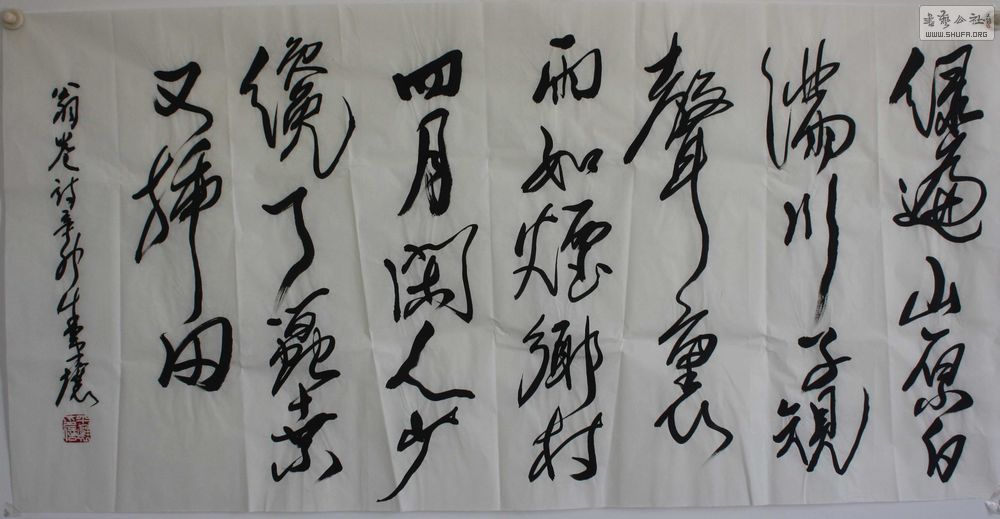 綠遍山原白
滿川子規
聲裏
雨如煙鄉村
四月閑人少
纔了蠶桑
又插田
翁卷诗辛卯
書藝公社
WWW.SHUFA.ORG